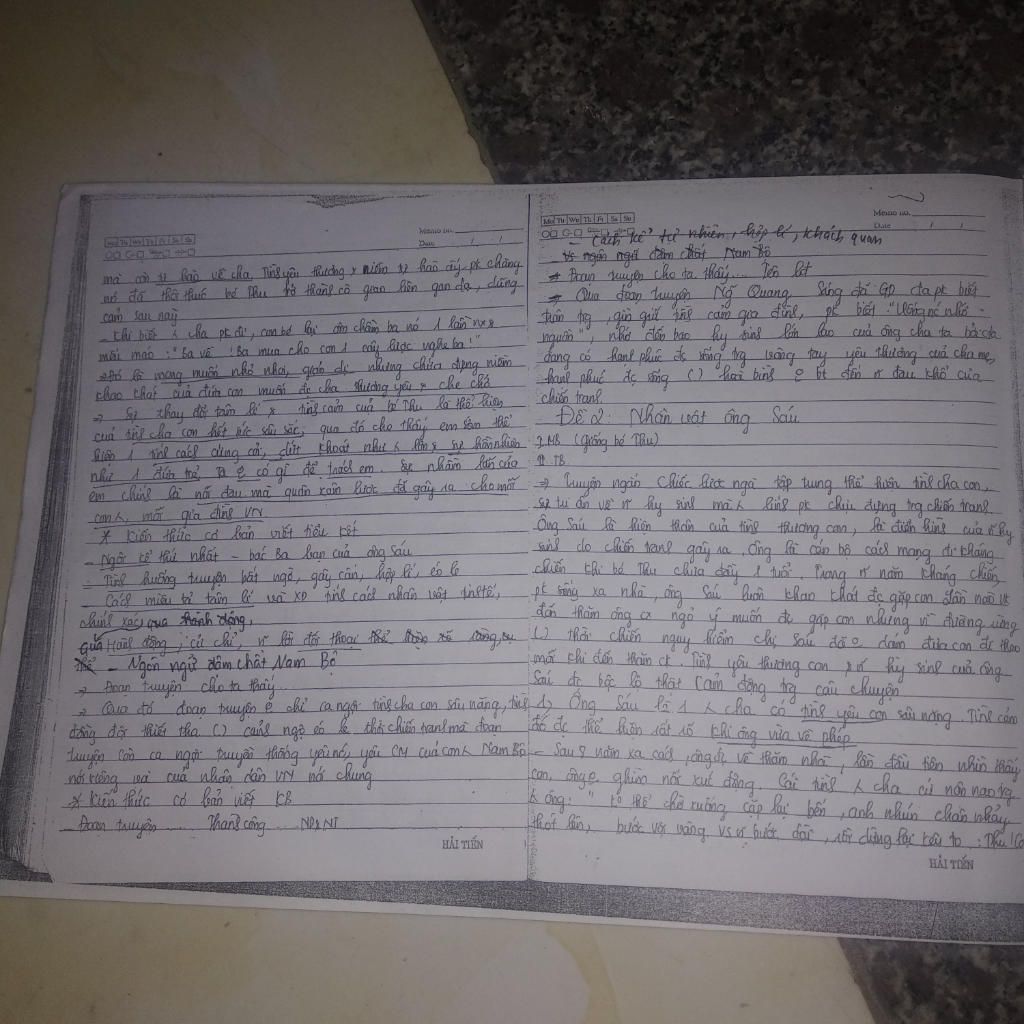 Mo Tu We Th Fr Sa Su
Memo no.
Date / /
mà còn rất tự hào về cha. Tình yêu thương x niềm tự hào ấy, pk chăng
nó đã thôi thúc bé Thu trở thành cô giao liên gan dạ, dũng
cảm sau này
- Khi biết cha pk đi, con bé lại ôm chầm ba nó 1 lần nx &
mếu máo: "Ba về! Ba mua cho con 1 cây lược nghe ba!"
=> Đó là mong muốn nhỏ nhoi, giản dị nhưng chứa đựng niềm
khao khát của đứa con muốn đc cha thương yêu x che chở
=> Sự thay đổi tâm lí x tình cảm của bé Thu là thể hiện
của tình cha con hết sức sâu sắc, qua đó cho thấy em sớm thể
hiện 1 tính cách cứng cỏi, dứt khoát như lớn & sự hồn nhiên
như 1 đứa trẻ. Ta có gì để trách em. Sự nhầm lẫn của
em chính là nỗi đau mà quân xâm lược đã gây ra cho mỗi
con, mỗi gia đình VN
* Kiến thức cơ bản viết tiểu kết
- Ngôi kể thứ nhất - bác Ba bạn của ông Sáu
- Tình huống truyện bất ngờ, gay cấn, hợp lí, éo le
- Cách miêu tả tâm lí và XD tính cách nhân vật tinh tế,
chính xác, qua hành động,
qua hành động, cử chỉ, lời đối thoại
- Ngôn ngữ đậm chất Nam Bộ
=> Đoạn truyện cho ta thấy...
=> Qua đó đoạn truyện chỉ ca ngợi tình cha con sâu nặng, tình
đồng đội thiết tha () cảnh ngộ éo le thời chiến tranh mà đoạn
truyện còn ca ngợi truyền thống yêu nc, yêu CM của con Nam Bộ
nói riêng và của nhân dân VN nói chung
* Kiến thức cơ bản viết KB
- Đoạn truyện ... Thành công ... ND & NT
HẢI TIẾN
Mo Tu We Th Fr Sa Su
Memo no.
Date / /
- Cách kể tự nhiên, hợp lí, khách quan
ngôn ngữ đậm chất Nam Bộ
=> Đoạn truyện cho ta thấy... Tên lát
=> Qua đoạn truyện Ng Quang Sáng đã GD ta pk biết
trân trọg, gìn giữ tình cảm gia đình, pk biết "Uống nc nhớ
nguồn", nhớ đến bao hy sinh lớn lao của ông cha ta bởi ta
đang có hạnh phúc đc sống trg vòng tay yêu thương của cha mẹ,
hạnh phúc đc sống () hoà bình bt đến đau khổ của
chiến tranh.
Đề 2: Nhân vật ông Sáu
I. MB (Giống bé Thu)
II. TB
=> Truyện ngắn Chiếc lược ngà tập trung thể hiện tình cha con,
sự tri ân về hy sinh mà lính pk chịu đựng trg chiến tranh
Ông Sáu là hiện thân của tình thương con, là điển hình của hy
sinh do chiến tranh gây ra. Ông là cán bộ cách mạng đi kháng
chiến khi bé Thu chưa đầy 1 tuổi. Trong năm kháng chiến,
pk sống xa nhà, ông Sáu luôn khao khát đc gặp con. Lần nào vk
đến thăm ông cx ngỏ ý muốn đc gặp con nhưng vì đường rừng
() thời chiến nguy hiểm chị Sáu đã dám đưa con đi theo
mỗi khi đến thăm ck. Tình yêu thương con, hy sinh của ông
Sáu đc bộc lộ thật cảm động trg câu chuyện
1, Ông Sáu là 1 cha có tình yêu con sâu nặng. Tình cảm
đó đc thể hiện rất rõ khi ông vừa về phép
- Sau 8 năm xa cách, ông đc về thăm nhà, lần đầu tiên nhìn thấy
con, ông ghìm nổi xúc động. Cái tình cha cứ nôn nao trg
ông: " ko thể chờ xuồng cặp lại bến, anh nhún chân nhảy
thót lên, bước vội vàng vs bước dài, rồi dừng lại kêu to: Thu! Co
HẢI TIẾN